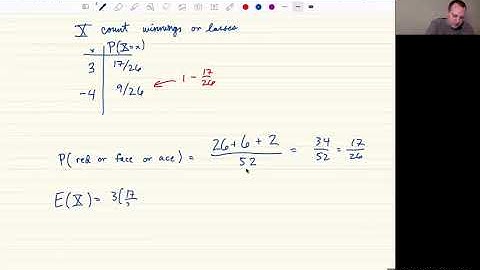 X count winnings or losses
x P(X=x)
3 17/26
-4 9/26 ← 1 - 17/26
P(red or face or ace) = 26+6+2/52 = 34/52 = 17/26
E(X) = 3(17/